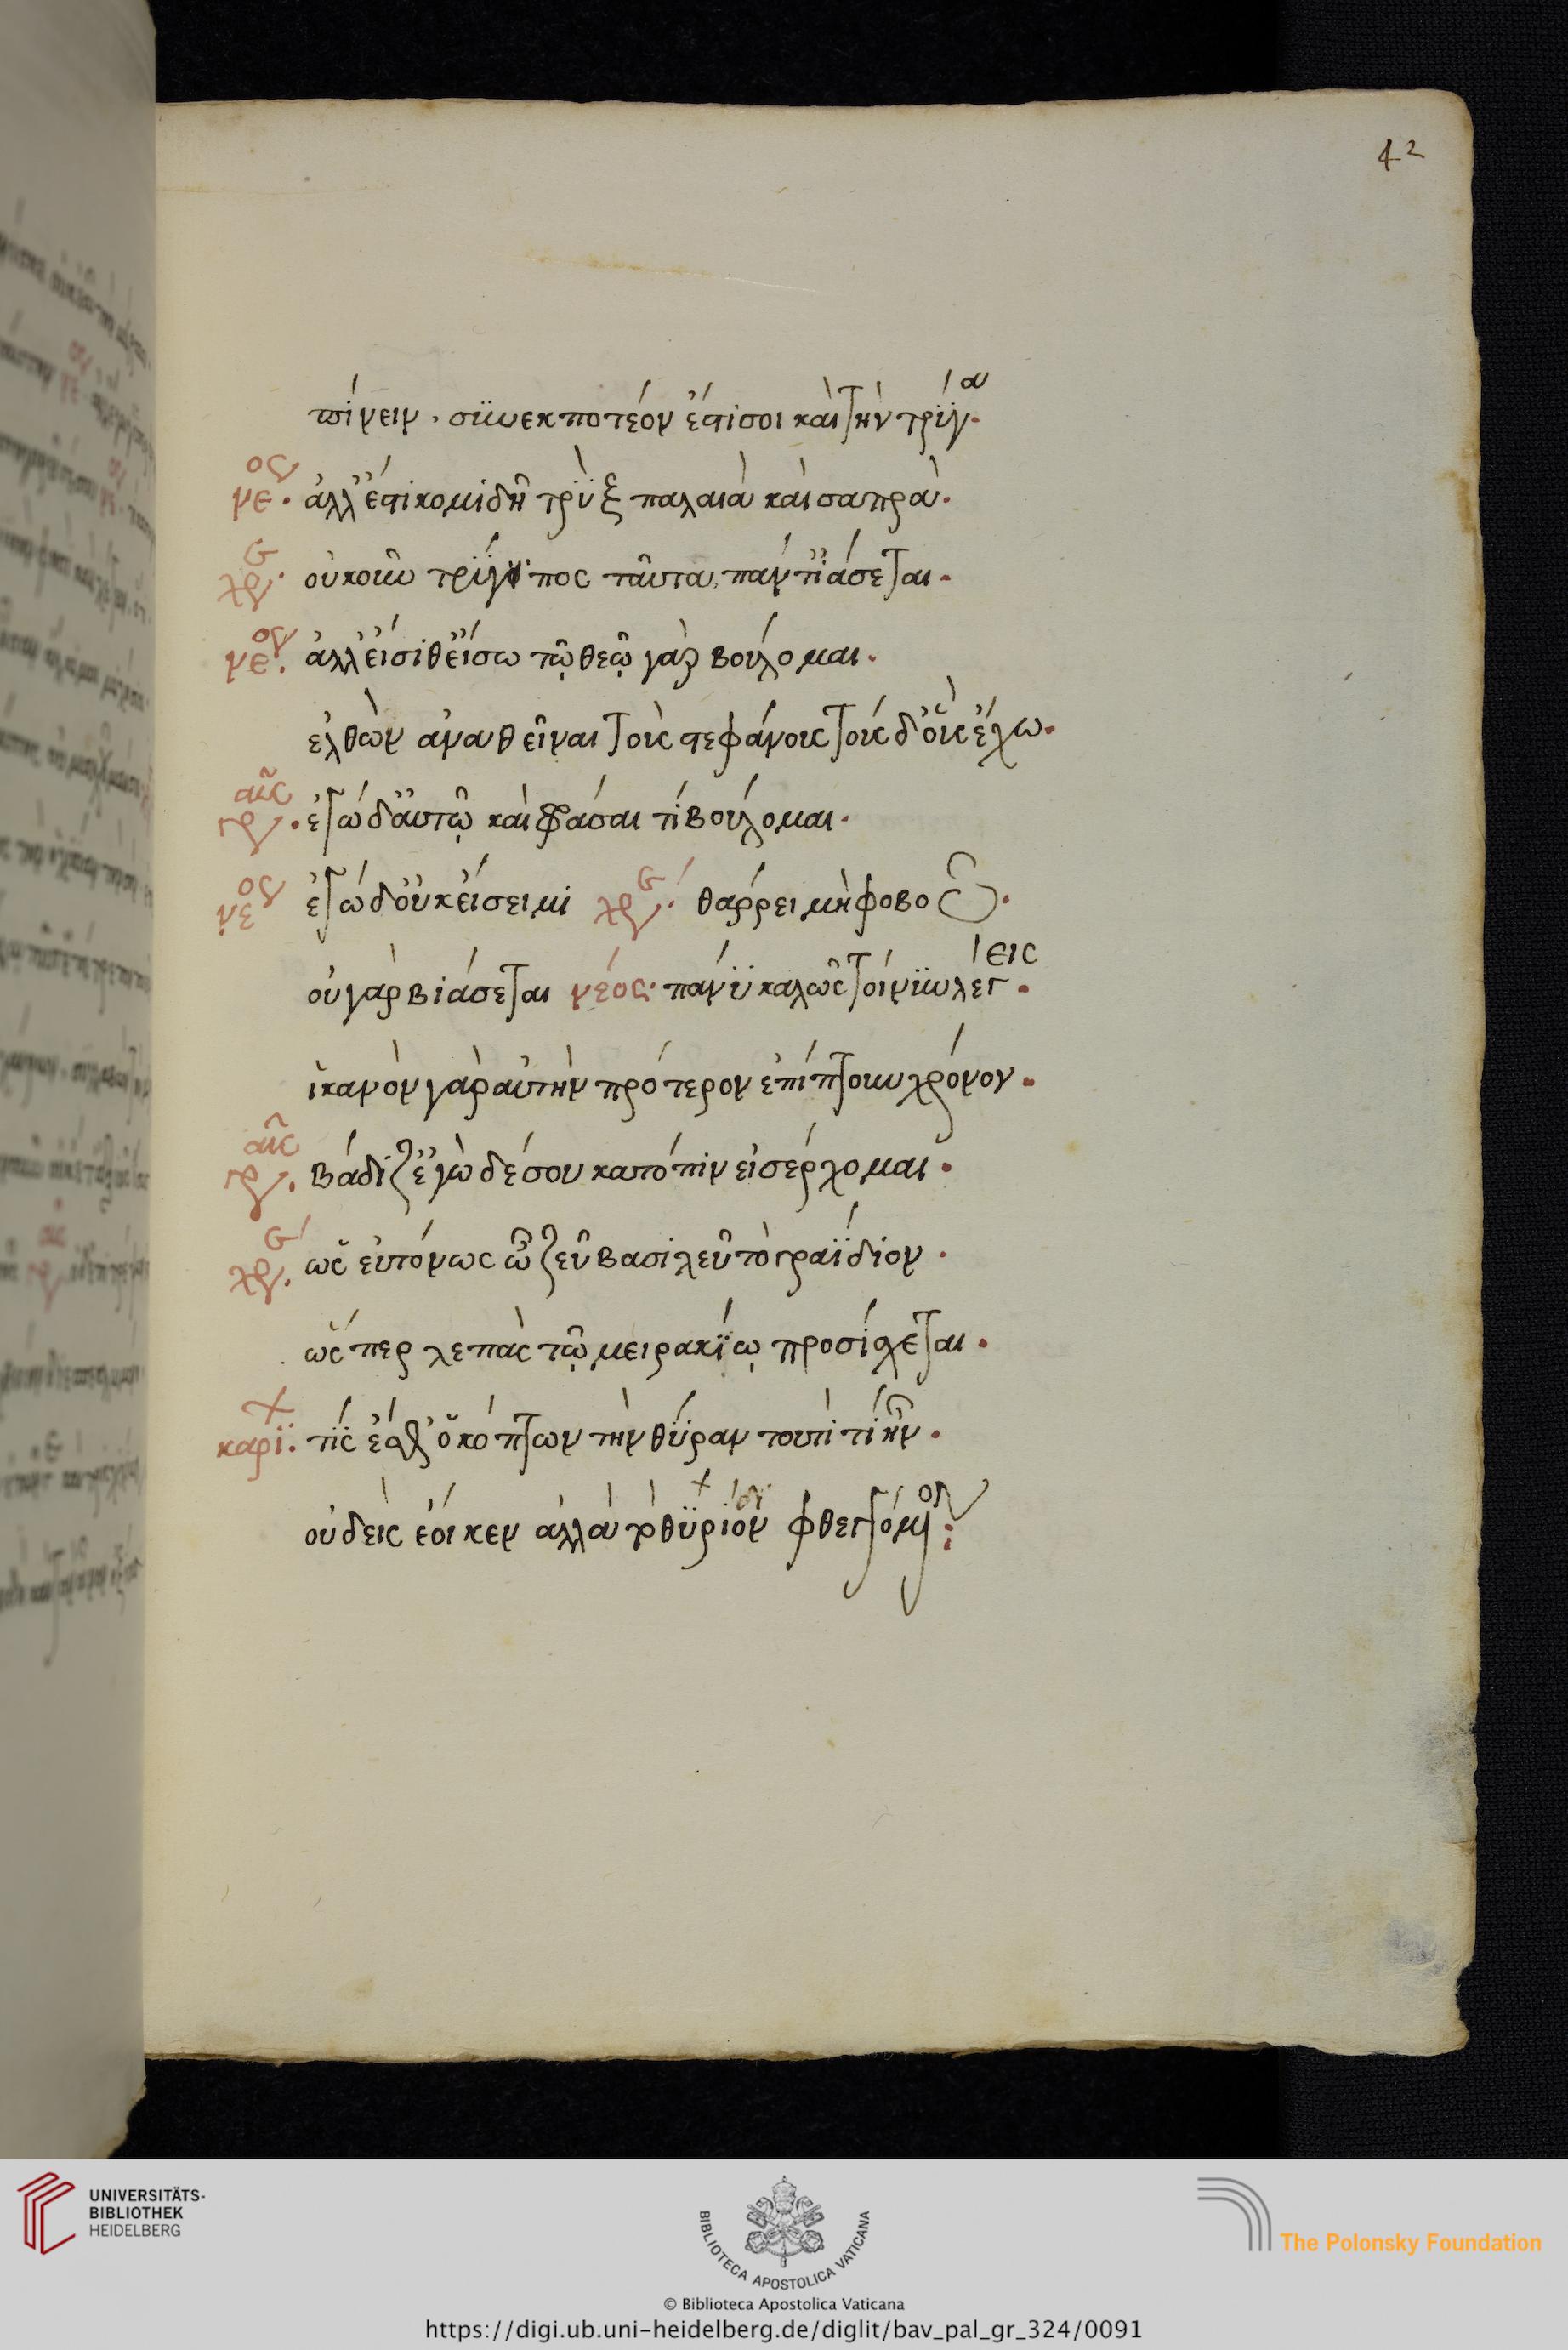 42
πίνειν, συνεκποτέον ἐστί σοι καὶ τὴν τρύγα.
νεος. ἀλλ' ἔστι κομιδῆ τρὺξ παλαιὰ καὶ σαπρά.
χρ. οὐκοῦν τρύγοιπος ταῦτα πάντ' ἰάσεται.
νεος. ἀλλ' εἴσιθ' εἴσω τῷ θεῷ γὰρ βούλομαι.
ἐλθὼν ἀναθεῖναι τοὺς στεφάνους τούσδ' οὓς ἔχω.
γραῦς. ἐγὼ δ' αὐτῷ καὶ φράσαι τί βούλομαι.
νεος ἐγὼ δ' οὐκ εἴσειμι χρ. θάρρει μὴ φοβοῦ.
οὐ γὰρ βιάσεται νέος. πάνυ καλῶς τοίνυν λέγεις.
ἱκανὸν γὰρ αὐτὴν πρότερον ἐπίπτουν χρόνον.
γραῦς. βάδιζ' ἐγὼ δέ σου κατόπιν εἰσέρχομαι.
χρ. ὡς εὐτόνως ὦ ζεῦ βασιλεῦ τὸ γραΐδιον.
ὥσπερ λεπὰς τῷ μειρακίῳ προσίσχεται.
καρί. τίς ἐσθ' ὁ κόπτων τὴν θύραν τουτὶ τί ἦν.
οὐδεὶς ἔοικεν ἀλλὰ τὸ θύριον φθεγγόμενον:
UNIVERSITÄTS-
BIBLIOTHEK
HEIDELBERG
BIBLIOTECA APOSTOLICA VATICANA
The Polonsky Foundation
© Biblioteca Apostolica Vaticana
https://digi.ub.uni-heidelberg.de/diglit/bav_pal_gr_324/0091